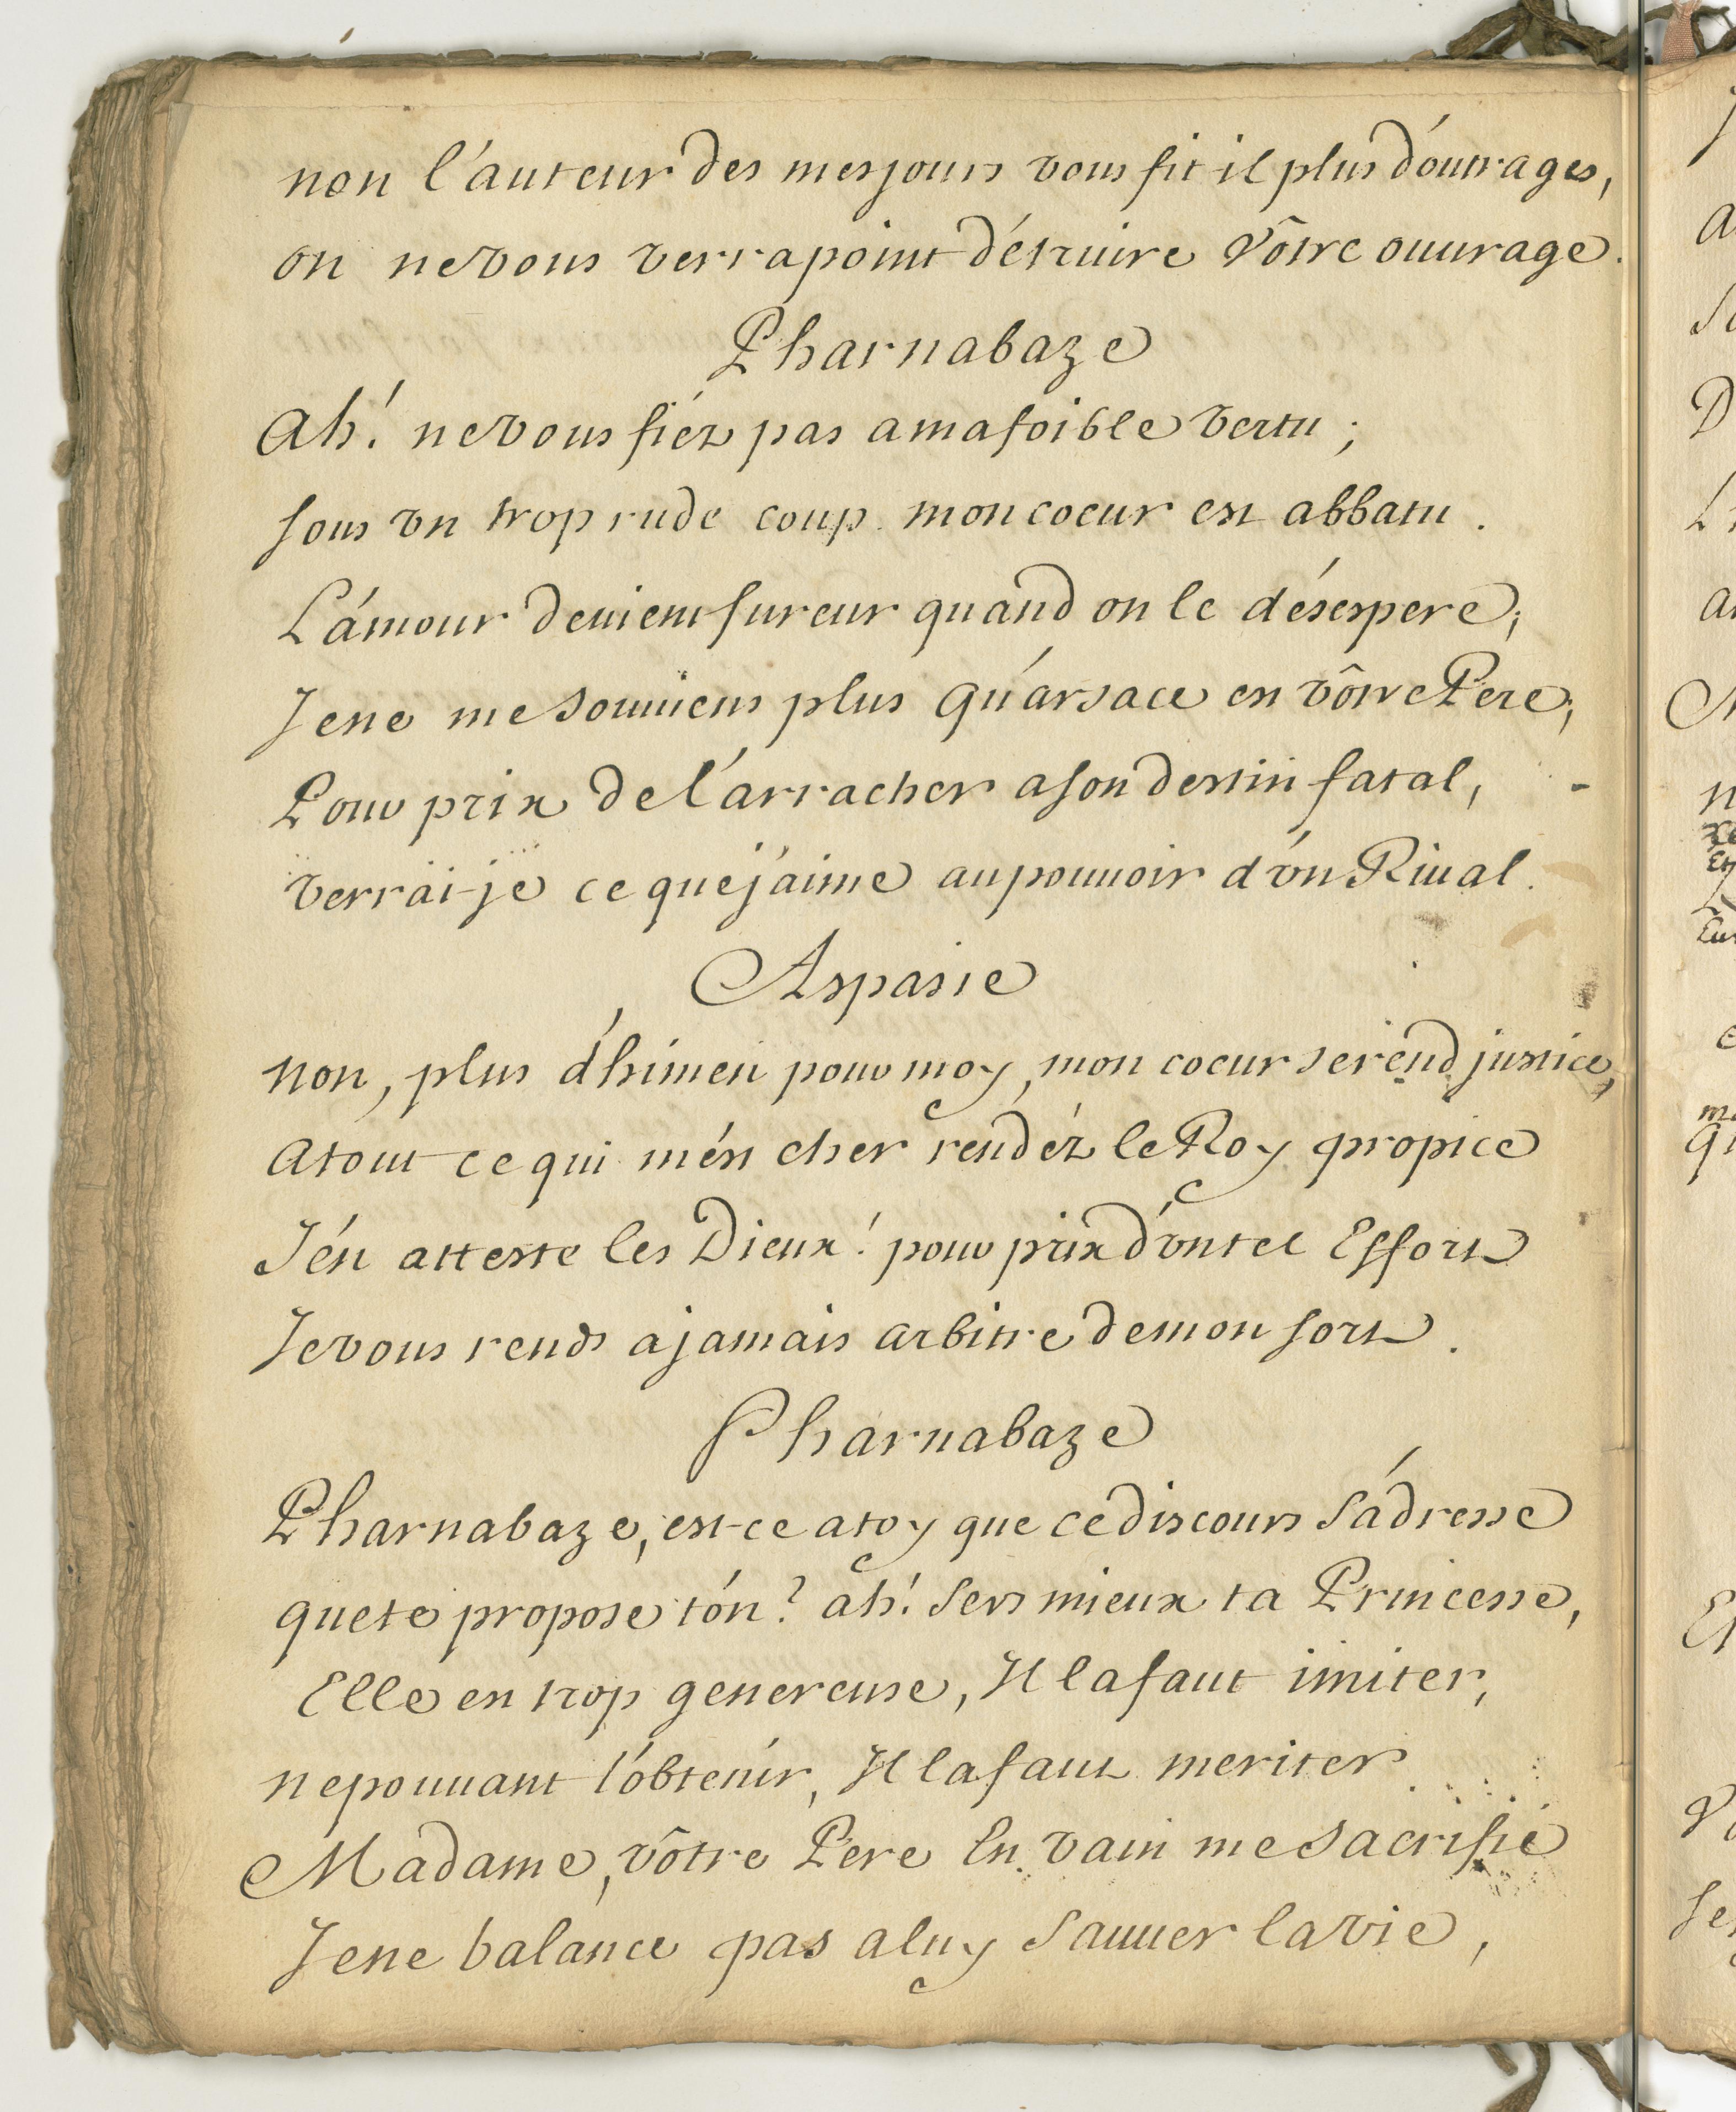 non l'auteur des mes jours vous fit il plus d'outrages,
on ne vous verra point détruire vôtre ouurage.
Pharnabaze
Ah! ne vous fiéz pas a ma foible vertu;
sous vn trop rude coup mon coeur est abbatu.
L'amour deuient fureur quand on le désespere;
Je ne me souuiens plus qu'arsace est vôtre Pere;
Pour prix de l'arracher a son destin fatal,
verrai-je ce que j'aime au pouuoir d'vn Riual.
Aspasie
non, plus d'himen pour moy, mon coeur se rend justice,
a tout ce qui m'est cher rendéz le Roy propice
J'en atteste les Dieux! pour prix d'vn tel Effort
Je vous rends a jamais arbitre de mon sort.
Pharnabaze
Pharnabaze, est-ce a toy que ce discours s'adresse
que te propose t'on? ah! sers mieux ta Princesse,
Elle est trop genereuse, Il la faut imiter,
ne pouuant l'obtenir, Il la faut meriter.
Madame, vôtre Pere En vain me sacrifie
Je ne balance pas a luy sauuer la vie,